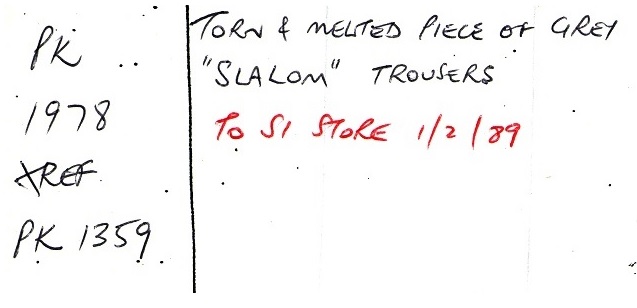 PK
1978
XREF
PK 1359
TORN & MELTED PIECE OF GREY
"SLALOM" TROUSERS
TO SI STORE 1/2/89